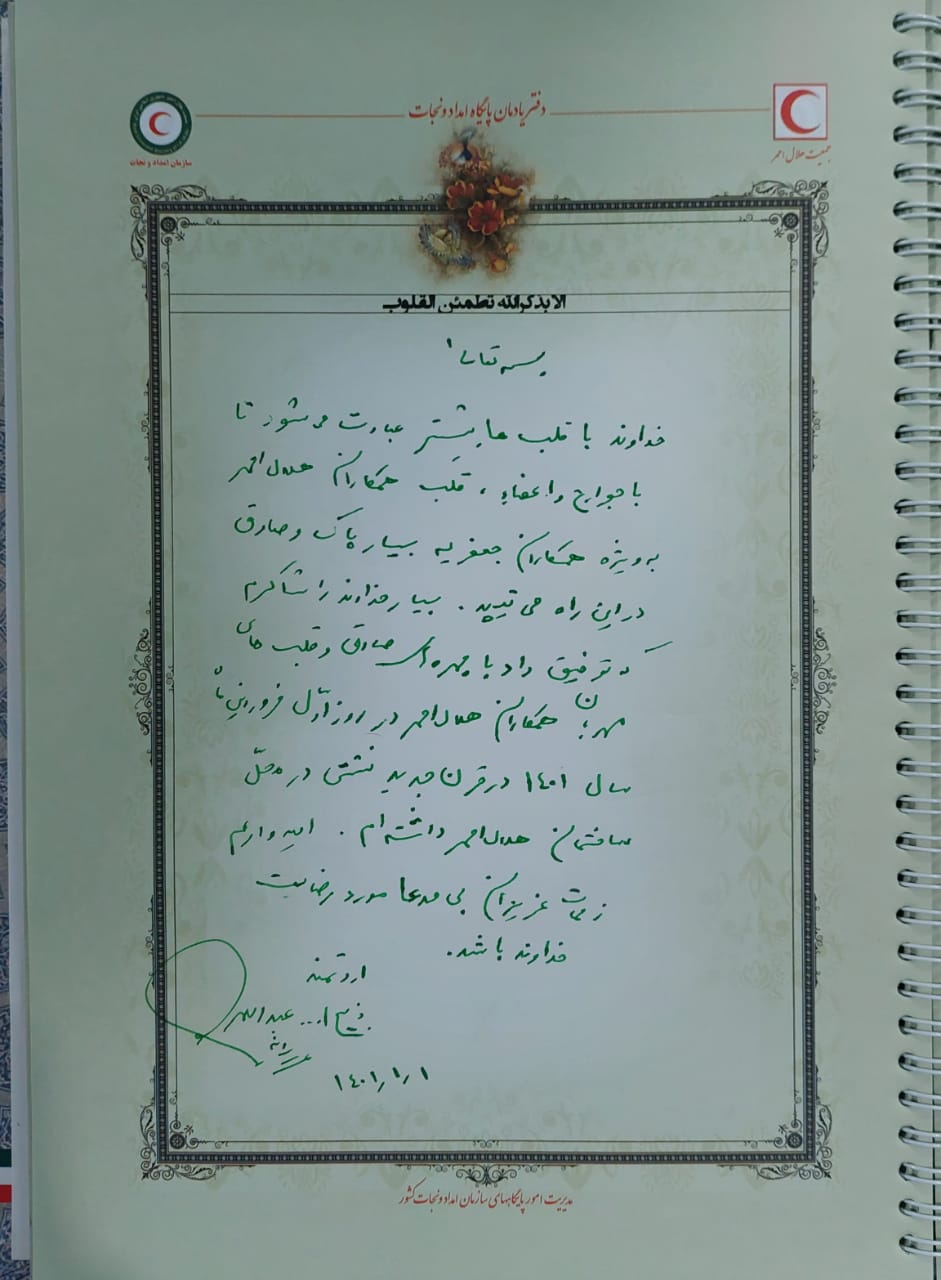 دفتر یادمان پایگاه امداد و نجات
جمعیت هلال احمر
سازمان امداد و نجات
الا بذکر الله تطمئن القلوب
بسمه تعالی
خداوند با قلب ها بیشتر عبادت می شود تا
با جوارح و اعضاء ، قلب همکاران هلال احمر
به ویژه همکاران جعفریه بسیار پاک و صادق
در این راه می تپید . بسیار خداوند را شاکرم
که توفیق داد با چهره های صادق و قلب های
مهربان همکاران هلال احمر در روز اوّل فروردین ماه
سال ۱۴۰۱ در قرن جدید نشستی در محلّ
ساختمان هلال احمر داشته ام . امیدوارم
زحمات عزیزان بی مدعا مورد رضایت
خداوند باشد.
ارادتمند
عبداللهی
۱۴۰۱٫۱٫۱
مدیریت امور پایگاههای سازمان امداد و نجات کشور